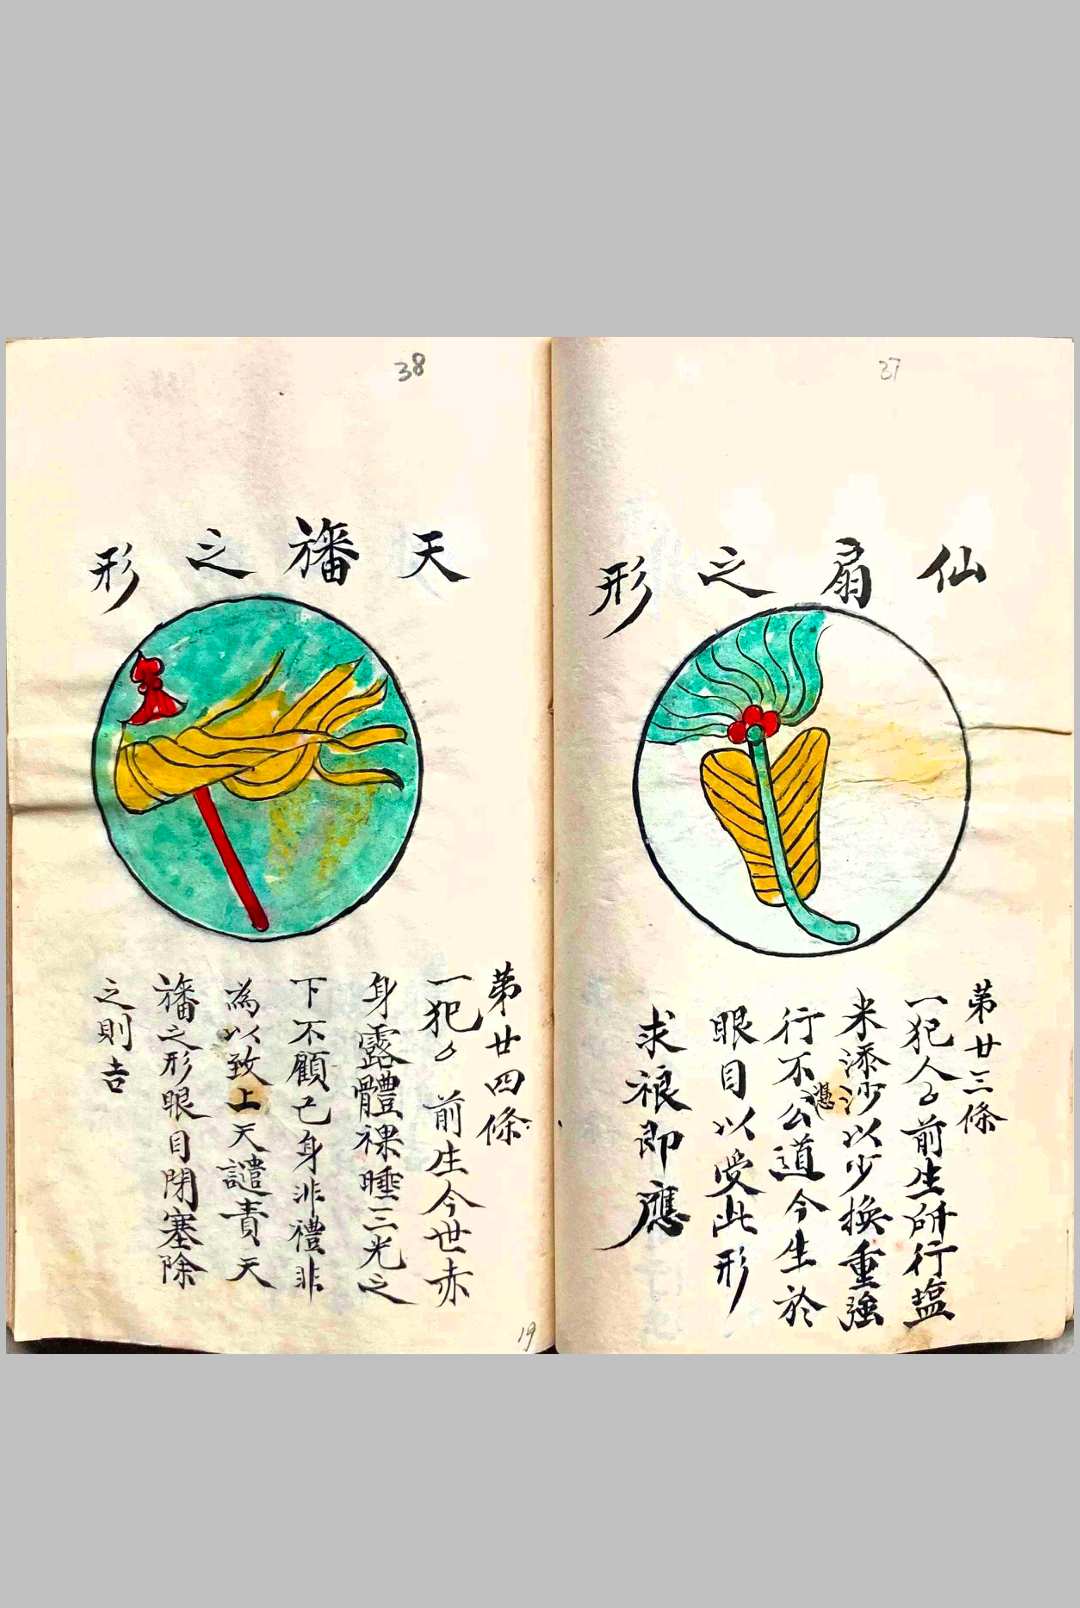 37
仙扇之形
第廿三條
一犯人己前生所行塩
米添沙以少換重強
行不公道今生於
憑
眼目以受此形
求禳即應
38
天旛之形
第廿四條
一犯己前生今世赤
身露體裸睡三光之
下不顧己身非禮非
為以致上天譴責天
旛之形眼目閉塞除
之則吉
19